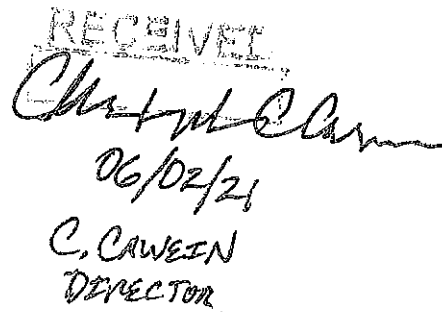 RECEIVED
06/02/21
C. CAWEIN
DIRECTOR